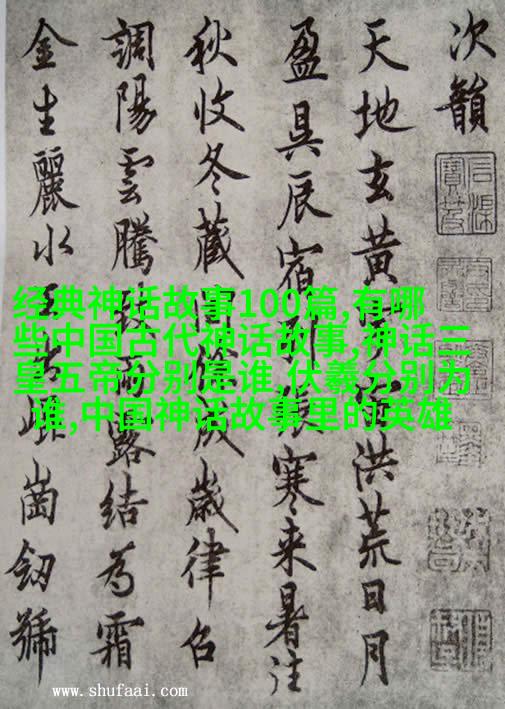 次韻
天地玄黄洪荒日月
盈昃辰宿列寒来暑往
秋收冬藏歲律召
調陽雲騰雨露結為霜
金生麗水崗劒號
经典神话故事100篇,有哪
些中国古代神话故事,神话三
皇五帝分别是谁,伏羲分别为
谁,中国神话故事里的英雄
www.shufaai.com